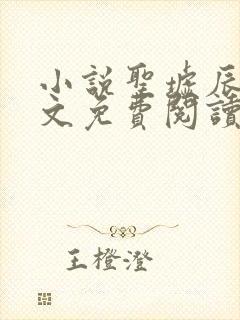 小說聖墟辰
文免費閱讀
王橙澄